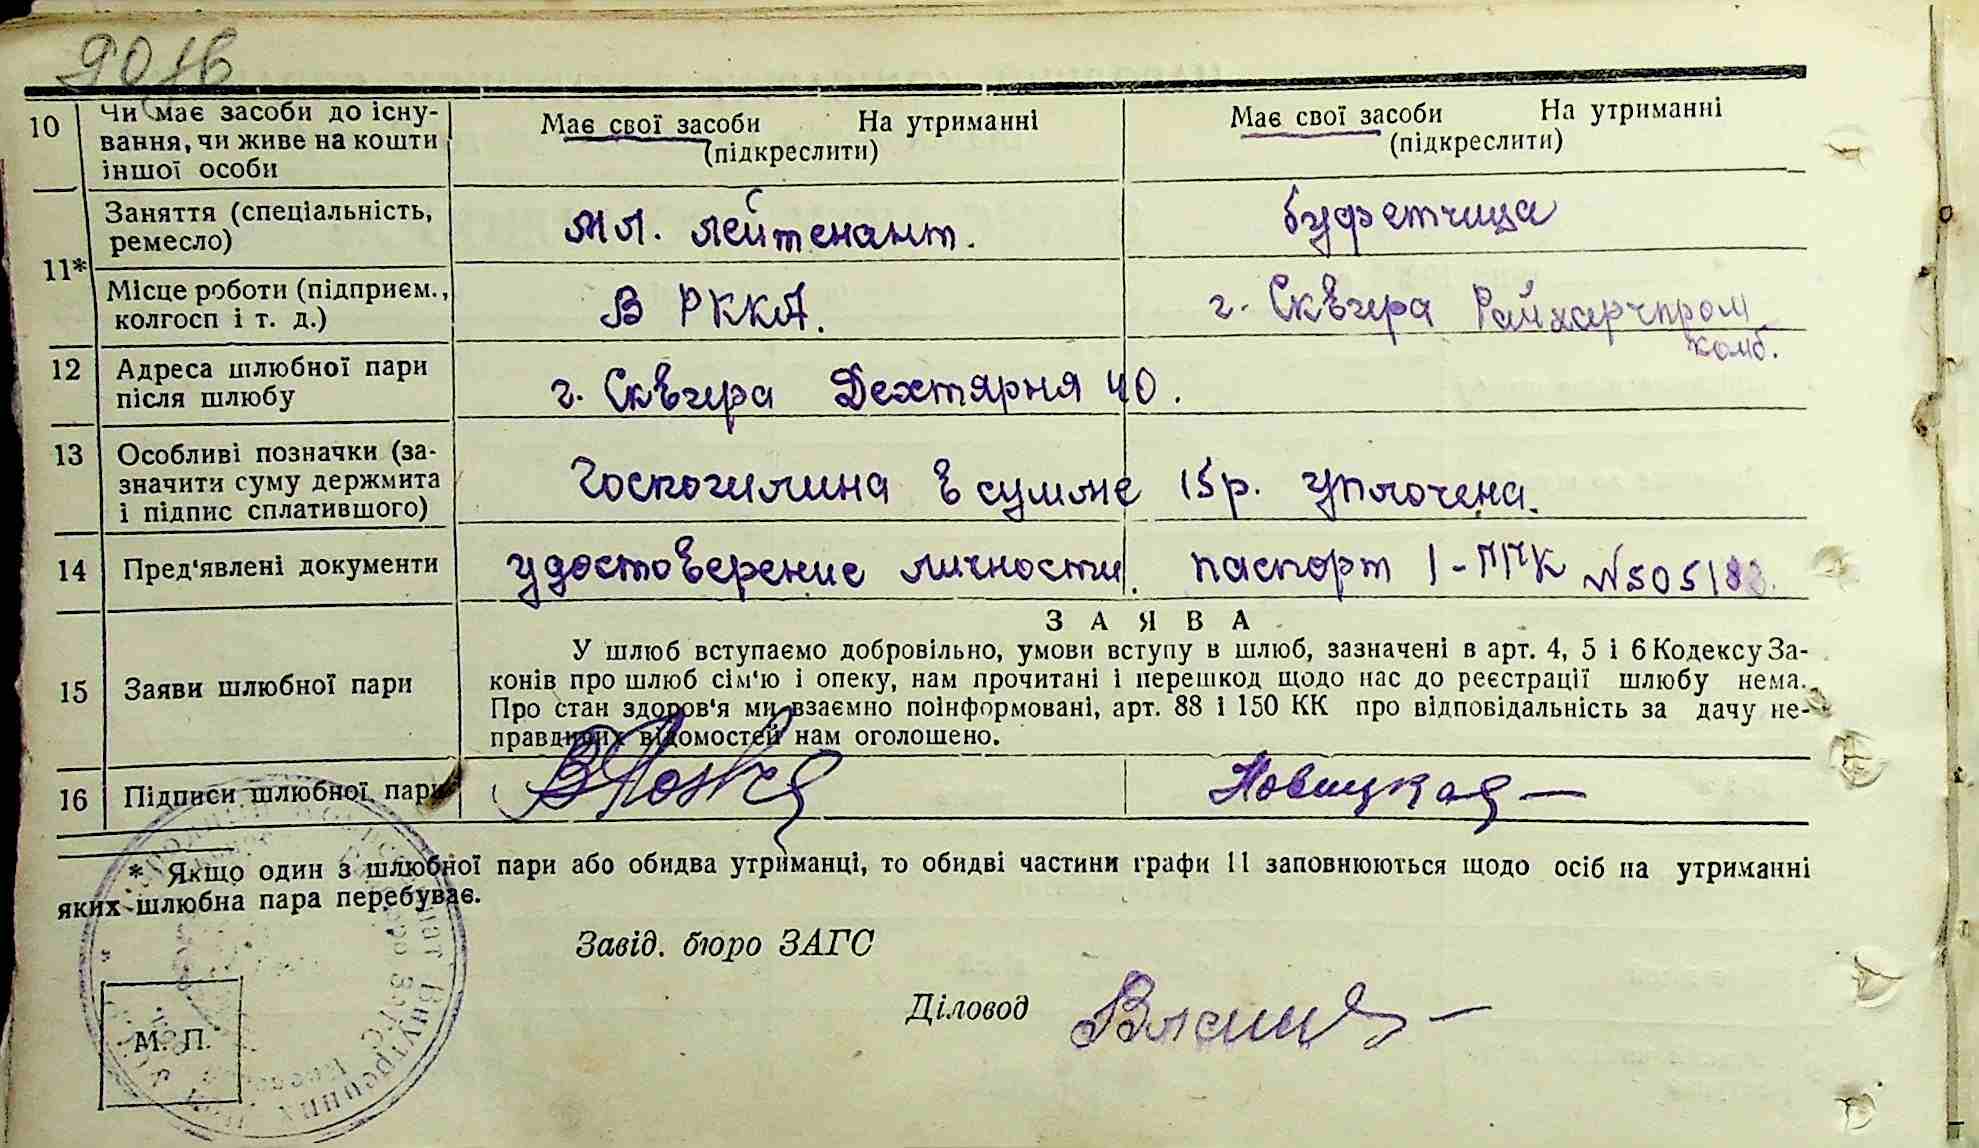 10 Чи має засоби до існу-
вання, чи живе на кошти
іншої особи
Має свої засоби На утриманні
(підкреслити)
Має свої засоби На утриманні
(підкреслити)
11*
Заняття (спеціальність,
ремесло)
мл. лейтенант.
буфетчица
Місце роботи (підприєм.,
колгосп і т. д.)
В РККА.
г. Сквира Райхарчпром
комб.
12 Адреса шлюбної пари
після шлюбу
г. Сквира Дехтярня 40.
13 Особливі позначки (за-
значити суму держмита
і підпис сплатившого)
Госпошлина в сумме 15 р. уплочена.
14 Пред'явлені документи
удостоверение личности. паспорт
15 Заяви шлюбної пари
ЗАЯВА
У шлюб вступаємо добровільно, умови вступу в шлюб, зазначені в арт. 4, 5 і 6 Кодексу За-
конів про шлюб сім'ю і опеку, нам прочитані і перешкод щодо нас до реєстрації шлюбу нема.
Про стан здоров'я ми взаємно поінформовані, арт. 88 і 150 КК про відповідальність за дачу не-
правдивих відомостей нам оголошено.
16 Підписи шлюбної пари
Новицкая
* Якщо один з шлюбної пари або обидва утриманці, то обидві частини графи 11 заповнюються щодо осіб на утриманні
яких шлюбна пара перебуває.
Завід. бюро ЗАГС
Діловод
М. П.